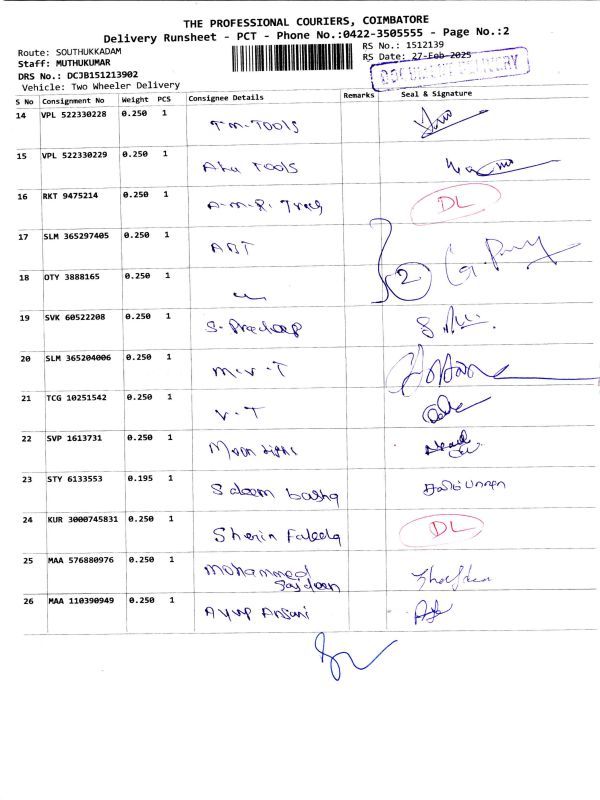 THE PROFESSIONAL COURIERS, COIMBATORE
Delivery Runsheet - PCT - Phone No.:0422-3505555 - Page No.:2
Route: SOUTHUKKADAM
RS No.: 1512139
Staff: MUTHUKUMAR
RS Date: 27-Feb-2025
DRS No.: DCJB151213902
DELIVERY
Vehicle: Two Wheeler Delivery
S No Consignment No Weight PCS Consignee Details Remarks Seal & Signature
14 VPL 522330228 0.250 1 T-M-TOOLS
15 VPL 522330229 0.250 1 TOOLS
16 RKT 9475214 0.250 1 A-M-R. DL
17 SLM 365297405 0.250 1 ABT
18 OTY 3888165 0.250 1 2
19 SVK 60522208 0.250 1 S. Pradeep
20 SLM 365204006 0.250 1 M.V.T
21 TCG 10251542 0.250 1 V.T
22 SVP 1613731 0.250 1 Moon
23 STY 6133553 0.195 1 Saleem basha
24 KUR 3000745831 0.250 1 Sherin DL
25 MAA 576880976 0.250 1 Mohammed
26 MAA 110390949 0.250 1 Ayup Ansari